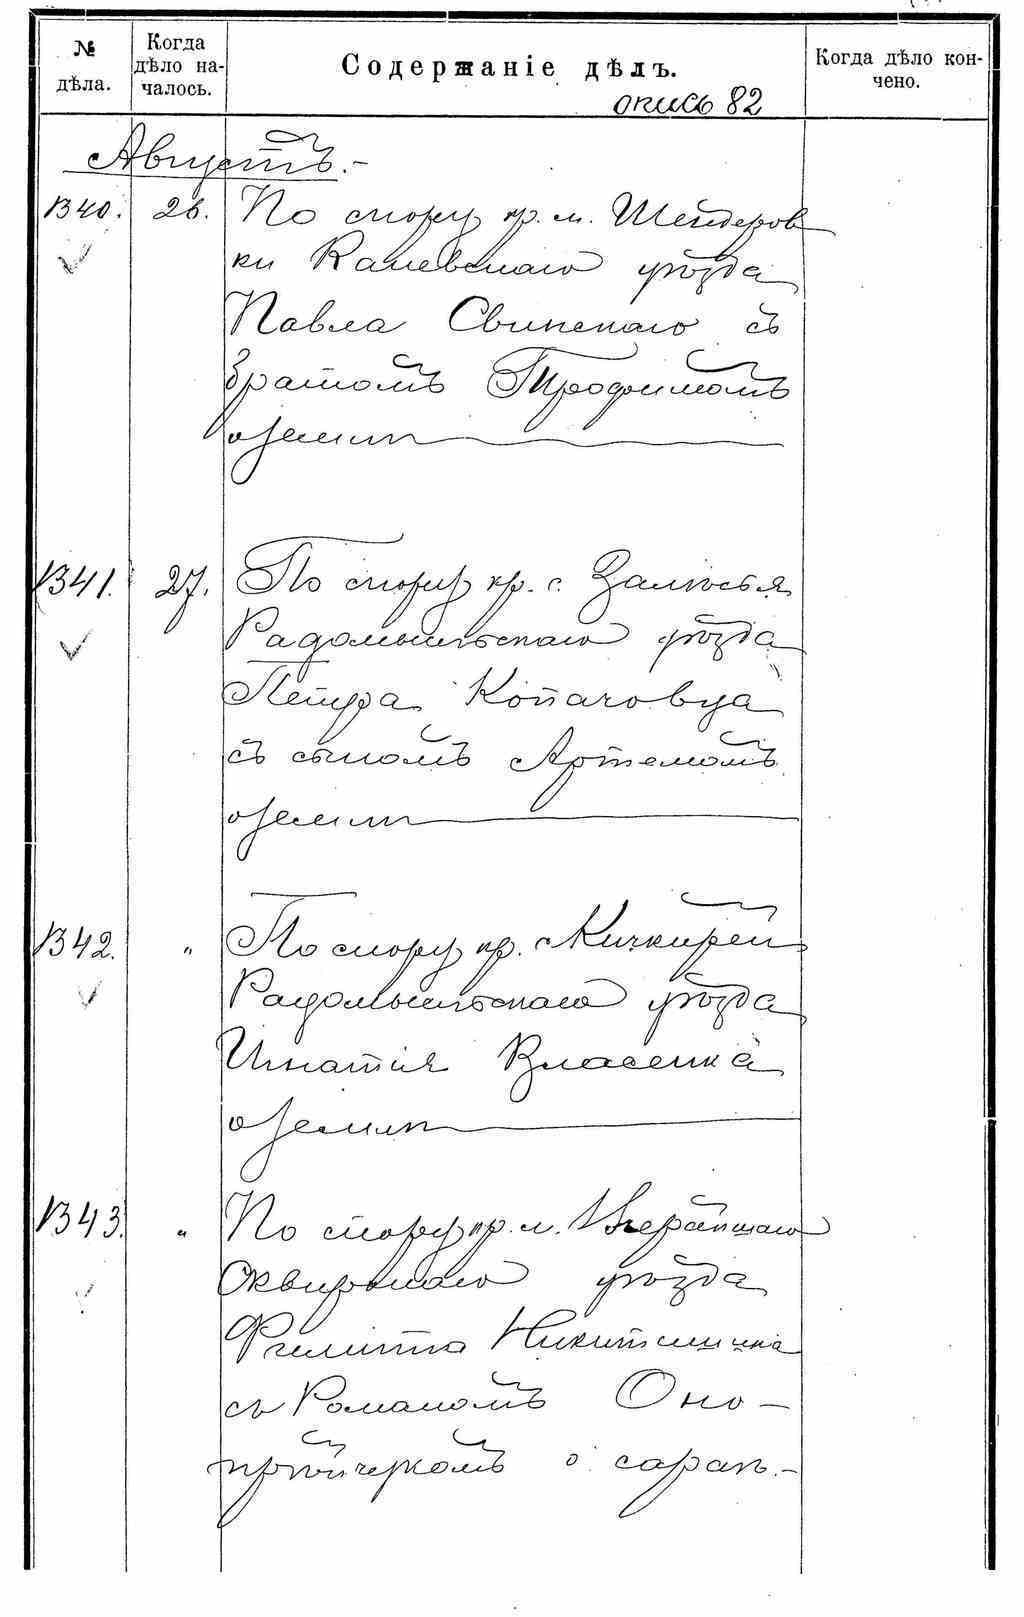 № дѣла.
Когда дѣло на-
чалось.
Содержаніе дѣлъ.
Когда дѣло кон-
чено.
опись 82
Августъ.-
1340. 26. По спору кр. м. Шендеров
ки Каневскаго уѣзда
Павла Свинскаго съ
братомъ Трофимомъ
о земли
1341. 27. По спору кр. с. Замостья
Радомысльскаго уѣзда
Петра Копачовца
съ сыномъ Артемомъ
о земли
1342. „ По спору кр. с. Кичкирей
Радомысльскаго уѣзда
Игнатія Власенка
о земли
1343. „ По спору кр. м.
Сквирскаго уѣзда
Филиппа
съ Романомъ Оно-
о сараѣ.-